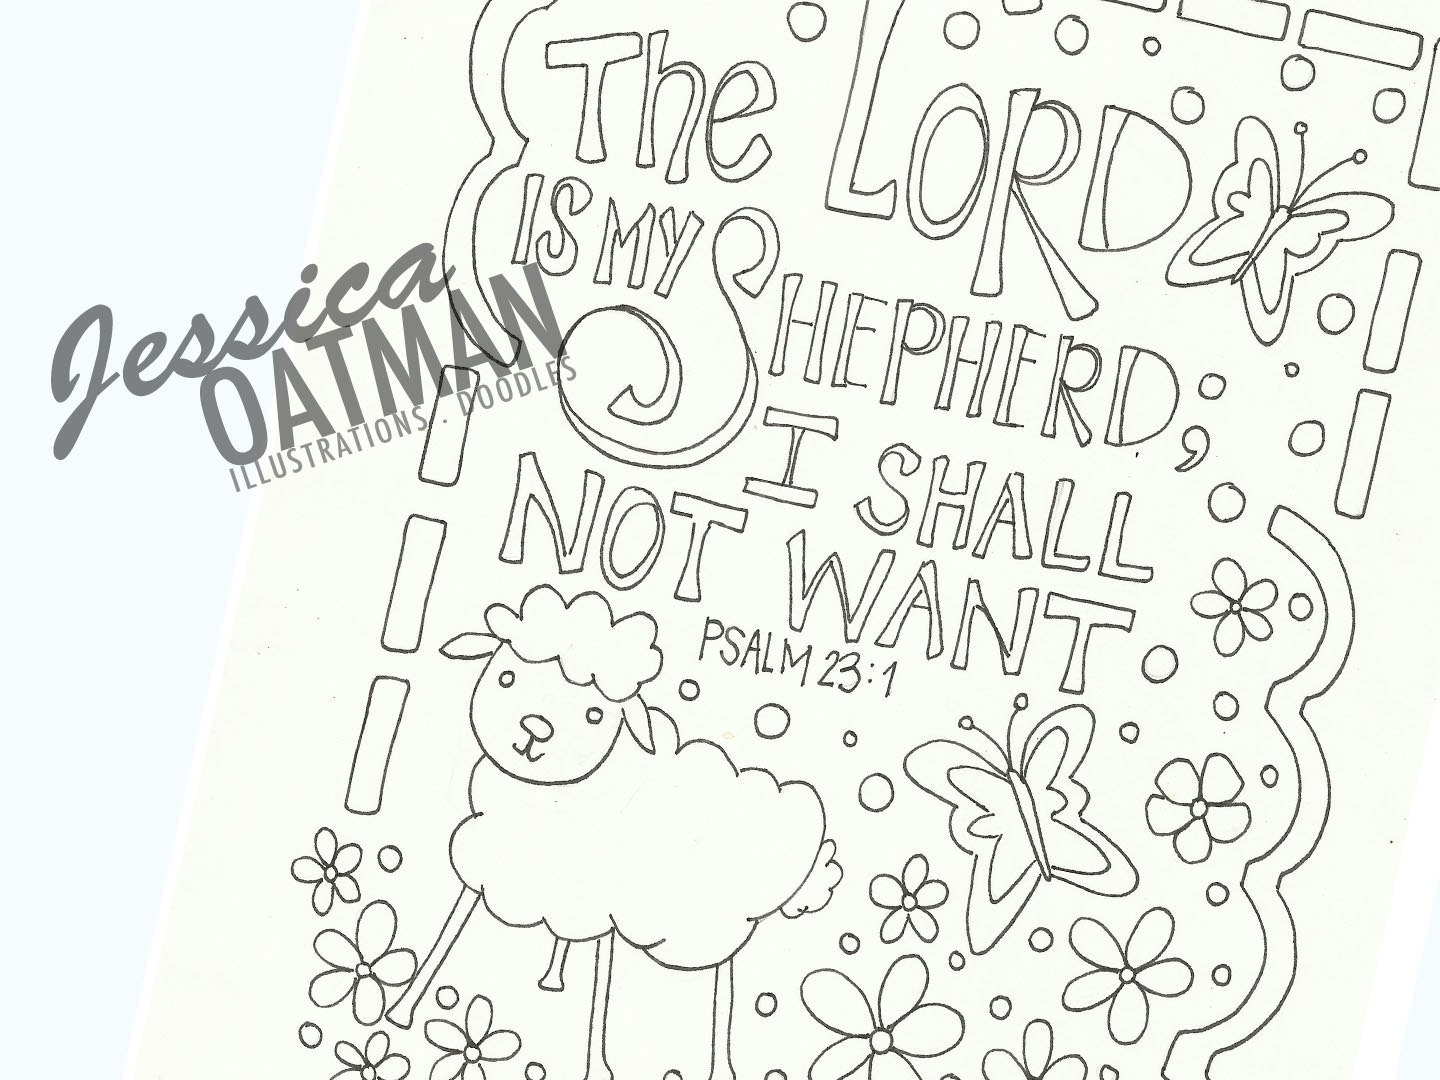 The LORD
IS MY SHEPHERD;
I SHALL
NOT WANT
PSALM 23:1
Jessica
OATMAN
ILLUSTRATIONS . DOODLES